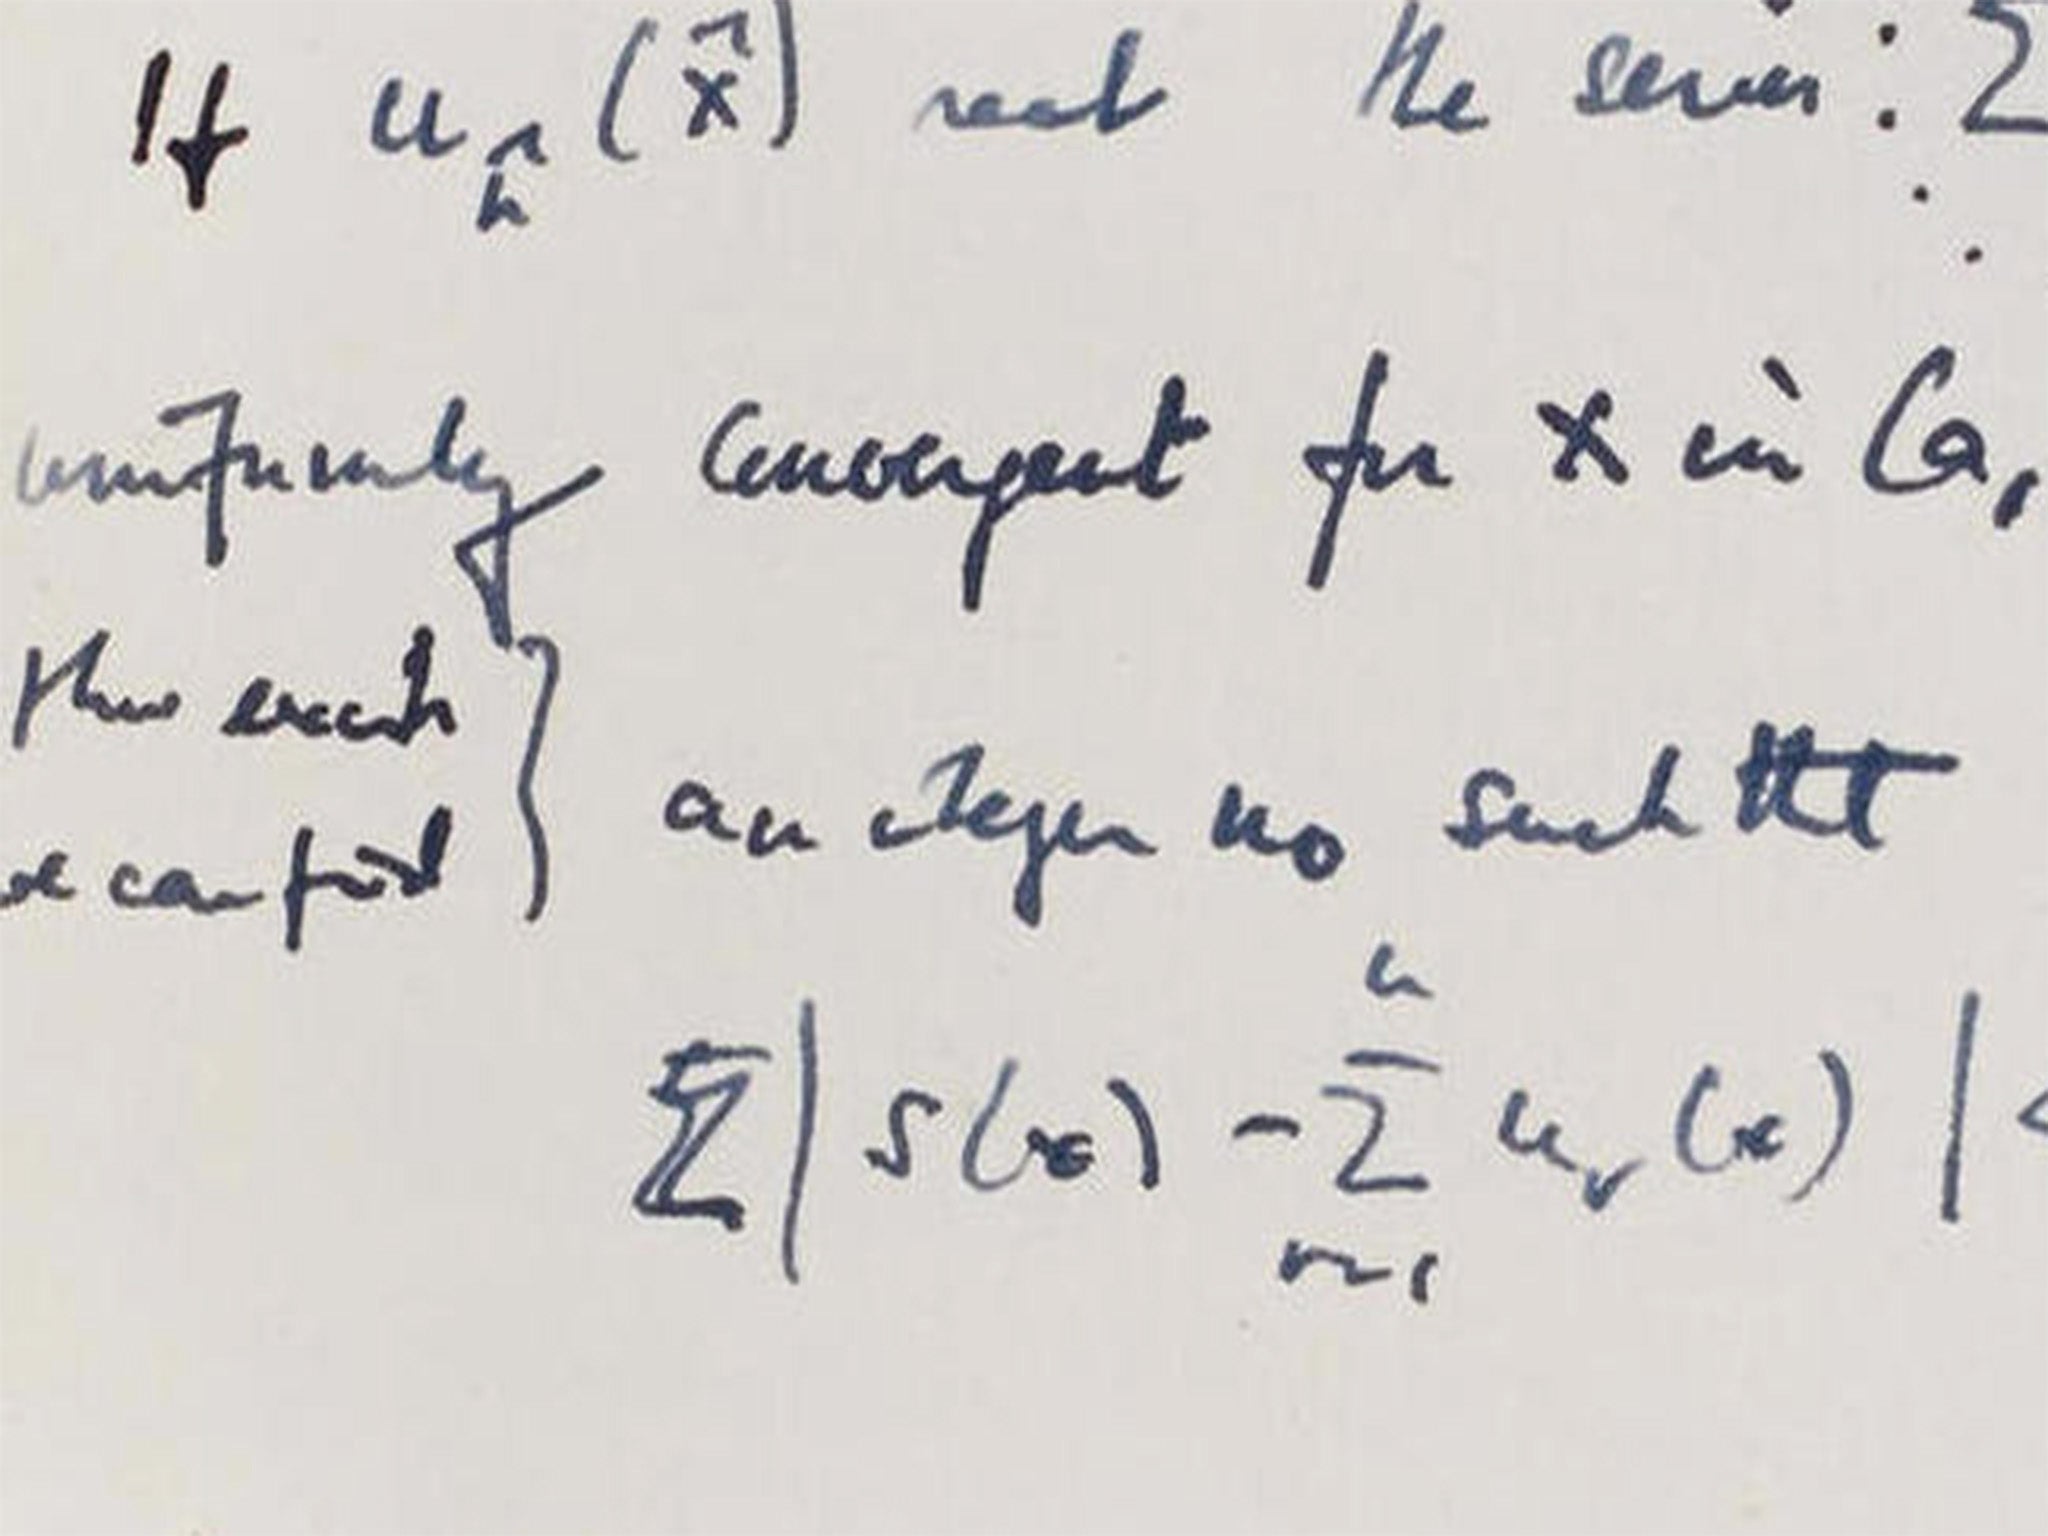 If uₙ(x) real the series : Σ
uniformly convergent for x in (a,
there exists
we can find } an integer n₀ such tht
n
Σ | S(x) - Σ uᵣ(x) | <
r=1